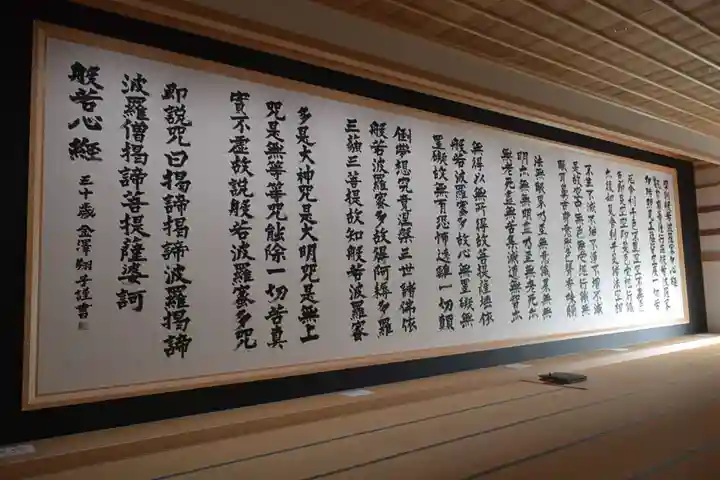 摩訶般若波羅蜜多心経
観自在菩薩行深般若波羅蜜
多時照見五蘊皆空度一切苦
厄舎利子色不異空空不異色
色即是空空即是色受想行識
亦復如是舎利子是諸法空相
不生不滅不垢不浄不増不減
是故空中無色無受想行識無
眼耳鼻舌身意無色声香味触
法無眼界乃至無意識界無無
明亦無無明尽乃至無老死亦
無老死尽無苦集滅道無智亦
無得以無所得故菩提薩埵依
般若波羅蜜多故心無罣礙無
罣礙故無有恐怖遠離一切顛
倒夢想究竟涅槃三世諸佛依
般若波羅蜜多故得阿耨多羅
三藐三菩提故知般若波羅蜜
多是大神咒是大明咒是無上
咒是無等等咒能除一切苦真
實不虚故説般若波羅蜜多咒
即説咒曰揭諦揭諦波羅揭諦
波羅僧揭諦菩提薩婆訶
般若心経
三十歳 金澤翔子謹書